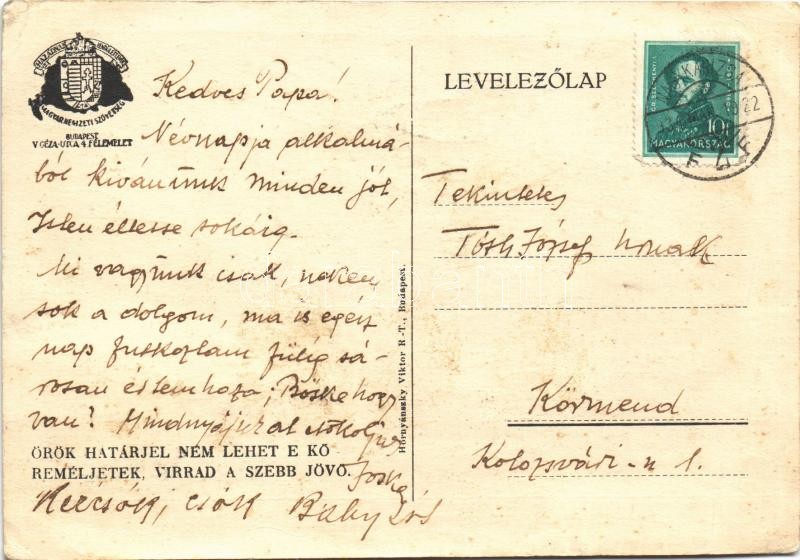 MAGYAR NEMZETI SZÖVETSÉG
BUDAPEST
V GÉZA-UTCA 4 FÉLEMELET
Kedves Papa!
Névnapja alkalmá-
ból kívánunk minden jót,
Isten éltesse sokáig.
Mi vagyunk csak, nekem
sok a dolgom, ma is egész
nap futkostam fülig sá-
rosan haza; Böske hogy
van? Mindnyájukat csókoljuk
Jóska
ÖRÖK HATÁRJEL NEM LEHET E KŐ
REMÉLJETEK, VIRRAD A SZEBB JÖVŐ.
csók Baby
Hornyánszky Viktor R.-T., Budapest.
LEVELEZŐLAP
10
MAGYARORSZÁG
22
Tekintetes
Tóth József úrnak
Körmend
Kolozsvári-u 1.